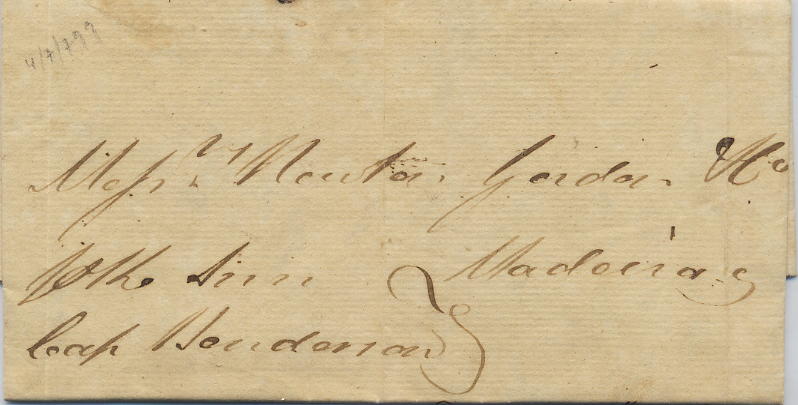 4/7/799
Messrs Newton Gordon & Co
Madeira
Cap Henderson